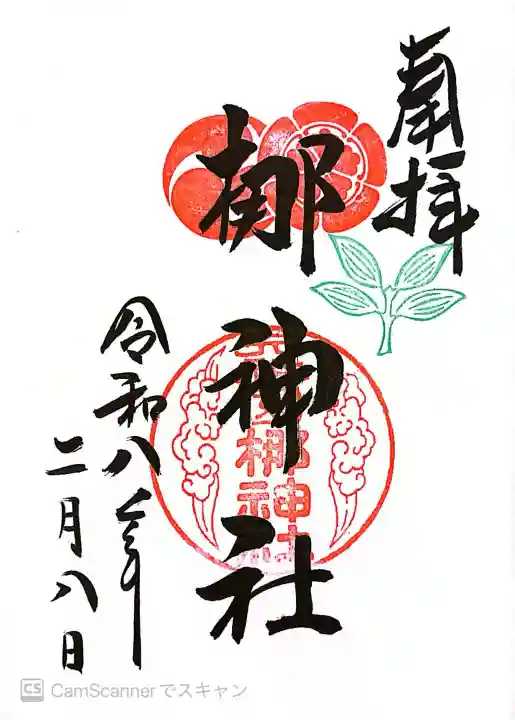 奉拝
梛神社
令和八年
二月八日
CS CamScannerでスキャン